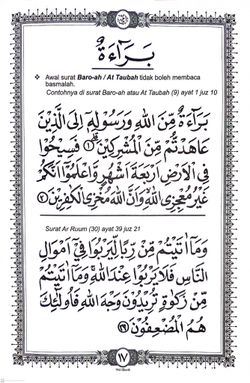 بَرَاءَةٌ
❖ Awal surat Baro-ah / At Taubah tidak boleh membaca
basmalah.
Contohnya di surat Baro-ah atau At Taubah (9) ayat 1 juz 10
بَرَآءَةٌ مِّنَ اللّٰهِ وَرَسُوْلِهٖٓ اِلَى الَّذِيْنَ
عَاهَدْتُّمْ مِّنَ الْمُشْرِكِيْنَ ۝١ فَسِيْحُوْا
فِى الْاَرْضِ اَرْبَعَةَ اَشْهُرٍ وَّاعْلَمُوْٓا اَنَّكُمْ
غَيْرُ مُعْجِزِى اللّٰهِ وَاَنَّ اللّٰهَ مُخْزِى الْكٰفِرِيْنَ ۝٢
Surat Ar Ruum (30) ayat 39 juz 21
وَمَآ اٰتَيْتُمْ مِّنْ رِّبًا لِّيَرْبُوَا۟ فِيْٓ اَمْوَالِ
النَّاسِ فَلَا يَرْبُوْا عِنْدَ اللّٰهِ وَمَآ اٰتَيْتُمْ
مِّنْ زَكٰوةٍ تُرِيْدُوْنَ وَجْهَ اللّٰهِ فَاُولٰٓئِكَ
هُمُ الْمُضْعِفُوْنَ ۝٣٩
١٧